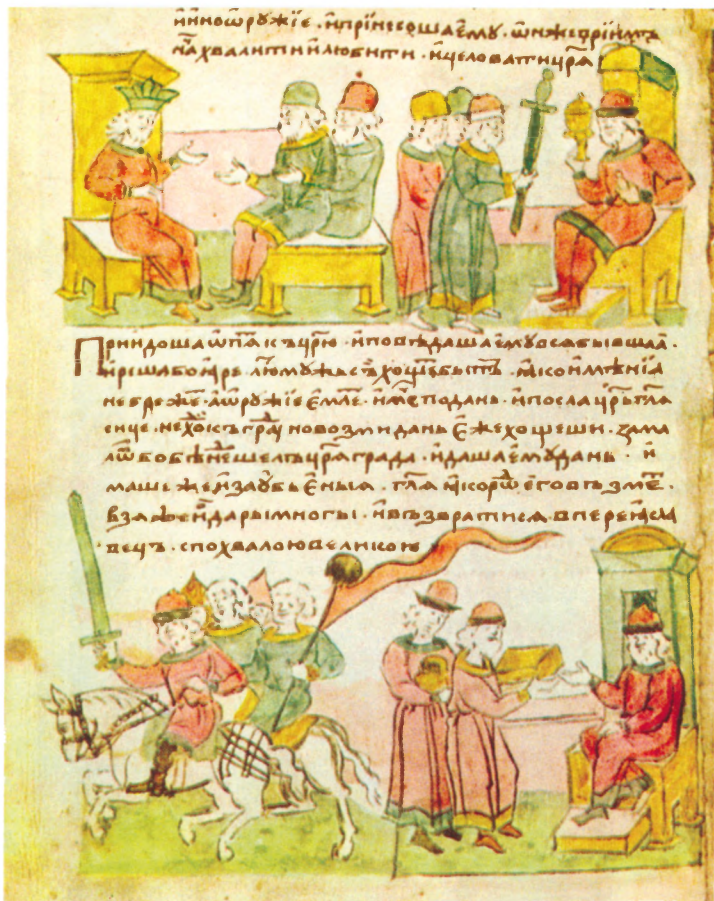 и ино ѡружїе · и принесоша ему · ѡн же прїимъ
нача хвалити и любити · и целовати црѧ
Приидоша ѡпѧ къ црю · и поведаша ему всѧ бывшаѧ ·
и реша боѧре лю мужь съ хощеть быть · ꙗко именїа
небреже · а ѡружїе емле · имисѧ подань · и посла црь глѧ
сице · не ходи къ граду но возми дань еже хощеши · зама
лѡ бо бѣ не шелъ црѧграда · и даша ему дань · и
машь же и за убьеныѧ · глѧ ꙗко род его възме ·
взѧ же и дары многы · и възвратисѧ в переꙗсла
вець · с похвалою великою